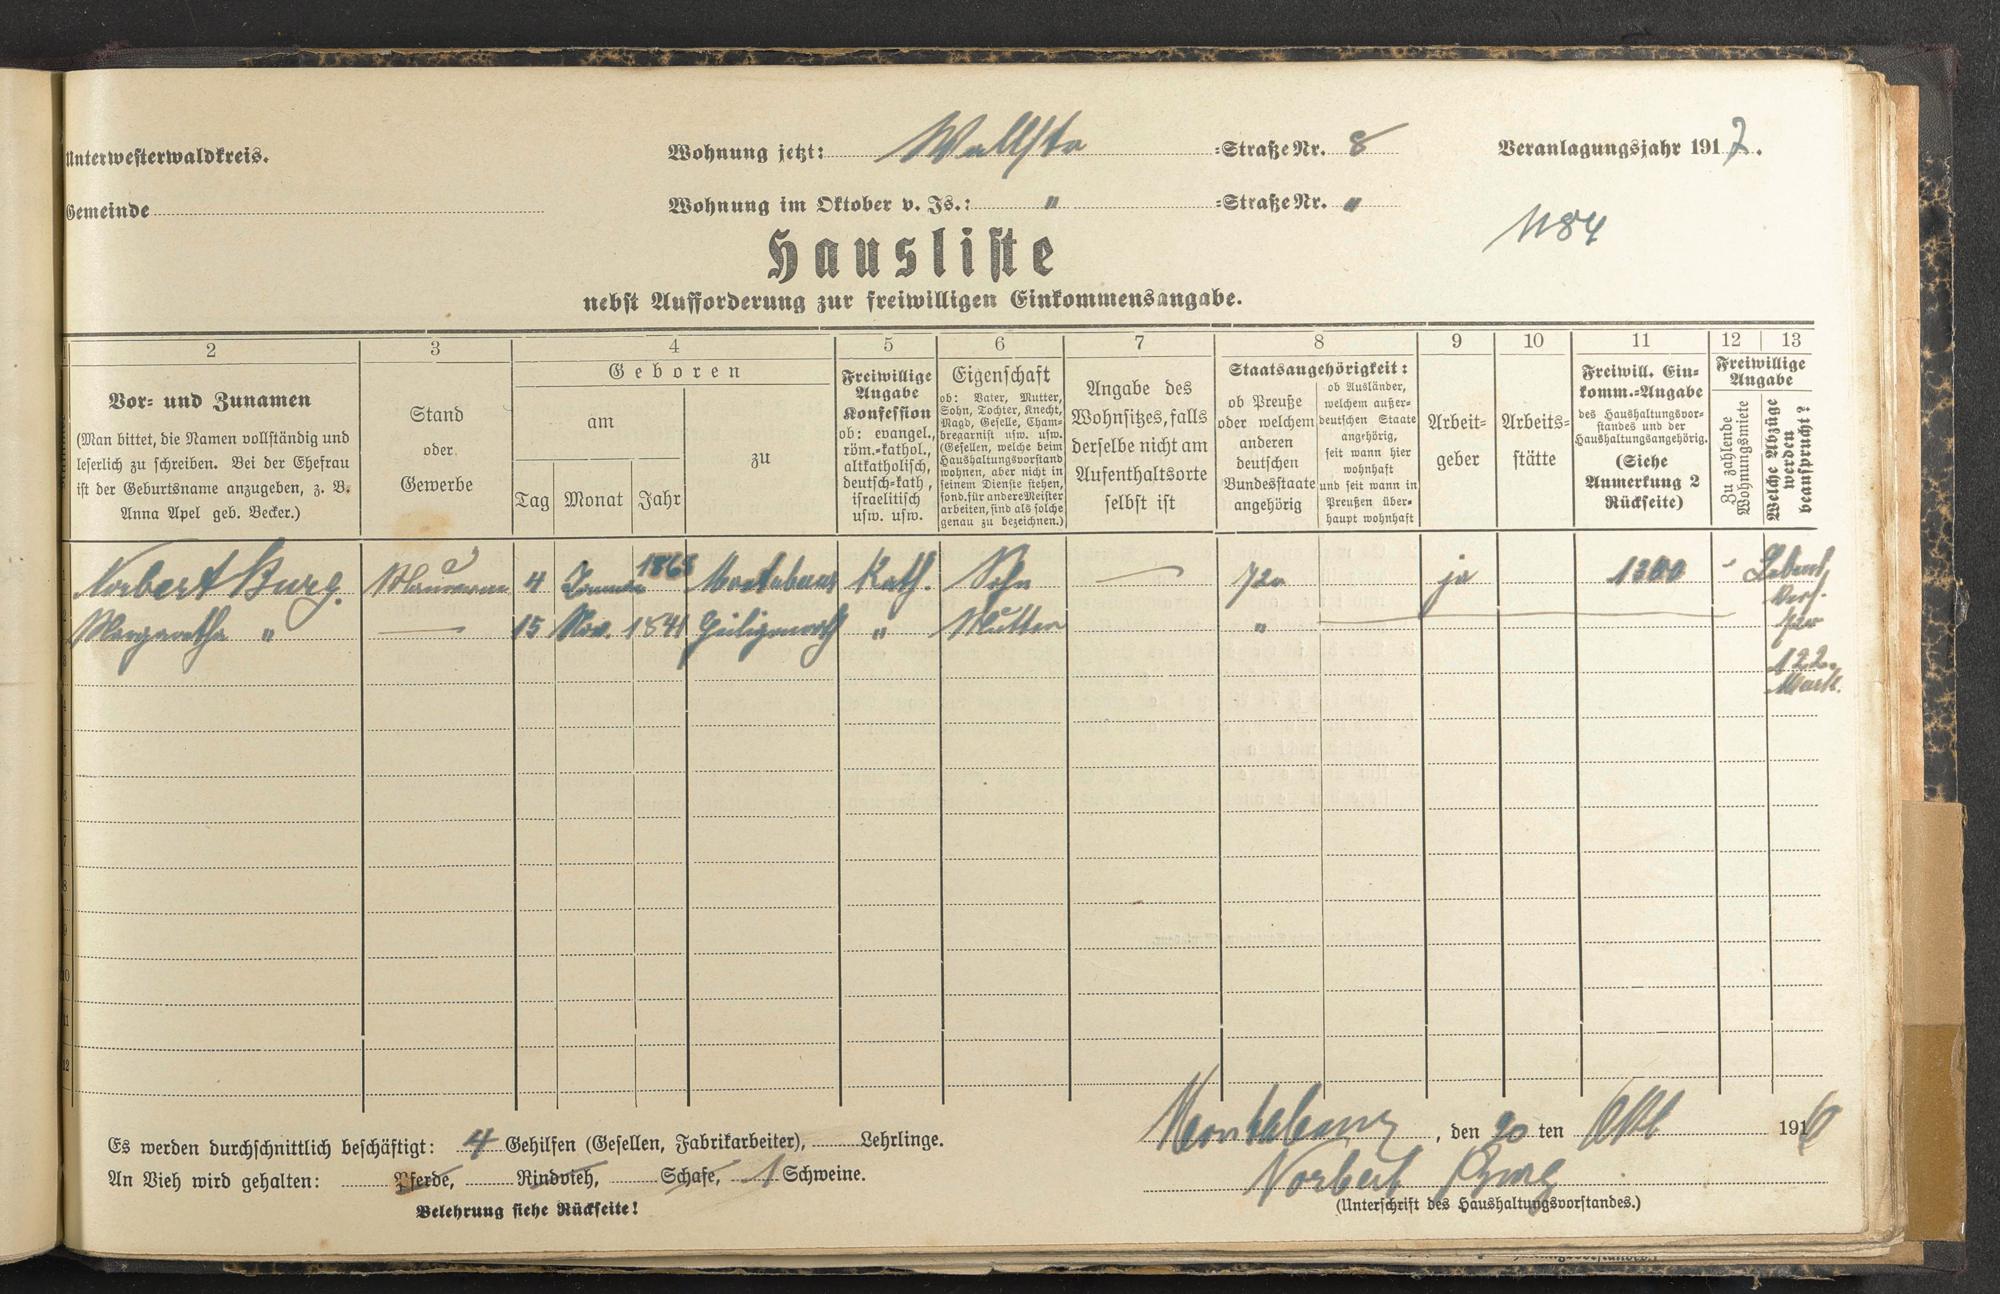 Unterwesterwaldkreis.
Wohnung jetzt: Wallstr =Straße Nr. 8
Veranlagungsjahr 1917.
Gemeinde
Wohnung im Oktober v. Js.: " =Straße Nr. "
1184
Hausliste
nebst Aufforderung zur freiwilligen Einkommensangabe.
2 3 4 5 6 7 8 9 10 11 12 13
Vor- und Zunamen
(Man bittet, die Namen vollständig und
leserlich zu schreiben. Bei der Ehefrau
ist der Geburtsname anzugeben, z. B.
Anna Apel geb. Becker.)
Stand
oder
Gewerbe
Geboren
am
Tag Monat Jahr
zu
Freiwillige
Angabe
Konfession
ob: evangel.,
röm.-kathol.,
altkatholisch,
deutsch-kath.,
israelitisch
usw. usw.
Eigenschaft
ob: Vater, Mutter,
Sohn, Tochter, Knecht,
Magd, Geselle, Cham-
bregarnist usw. usw.
(Gesellen, welche beim
Haushaltungsvorstand
wohnen, aber nicht in
seinem Dienste stehen,
sond. für andere Meister
arbeiten, sind als solche
genau zu bezeichnen.)
Angabe des
Wohnsitzes, falls
derselbe nicht am
Aufenthaltsorte
selbst ist
Staatsangehörigkeit:
ob Preuße
oder welchem
anderen
deutschen
Bundesstaate
angehörig
ob Ausländer,
welchem außer-
deutschen Staate
angehörig,
seit wann hier
wohnhaft
und seit wann in
Preußen über-
haupt wohnhaft
Arbeit-
geber
Arbeits-
stätte
Freiwill. Ein-
komm.-Angabe
des Haushaltungsvor-
standes und der
Haushaltungsangehörig.
(Siehe
Anmerkung 2
Rückseite)
Freiwillige
Angabe
Zu zahlende
Wohnungsmiete
Welche Abzüge
werden
beansprucht?
1 Norbert Burg. 4 Januar 1868 Montabaur Kath. Sohn — ja 1300 - Lebens
Vers.
2 Margaretha " — 15 Nov. 1841 " Mutter "
für
3 122.
Mark.
4
5
6
7
8
9
10
11
12
Es werden durchschnittlich beschäftigt: 4 Gehilfen (Gesellen, Fabrikarbeiter), Lehrlinge.
Montabaur, den 20 ten Okt 1916
An Vieh wird gehalten: Pferde, Rindvieh, Schafe, 1 Schweine.
Norbert Burg
(Unterschrift des Haushaltungsvorstandes.)
Belehrung siehe Rückseite!